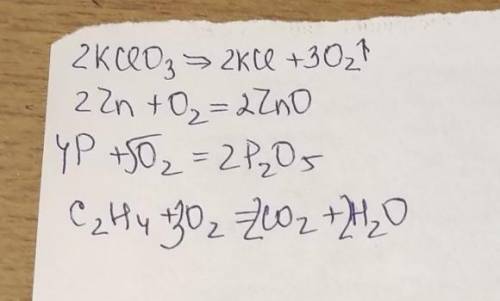 2KClO₃ ⇒ 2KCl + 3O₂↑
2Zn + O₂ = 2ZnO
4P + 5O₂ = 2P₂O₅
C₂H₄ + 3O₂ = 2CO₂ + 2H₂O